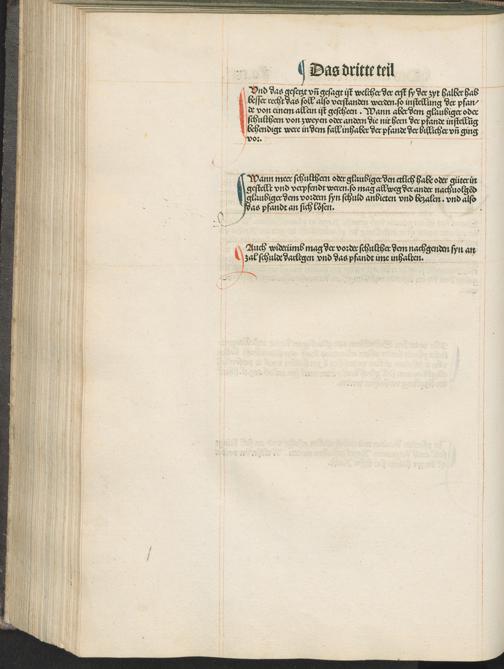 Das dritte teil
Vnd das gesetzt vn̄ gesagt ist welicher der erst sy der zyt halber hab
besser recht das soll also verstanden werden. so instellung der pfan/
de von einem allein ist gescheen. Wann aber dem glaubiger oder
schulthern von zweyen oder andern die nit hern der pfande instellūg
behendigt were in dem fall inhaber der pfande der billicher vn̄ ging
vor.
Wann meer schulthern oder glaubiger den etlich habe oder güter in
gestellt vnd verpfendt weren. so mag allweg der ander nachuolgēd
glaubiger dem vordern syn schuld anbieten vnd bezalen. vnd also
das pfandt an sich lösen.
Auch widerūmb mag der vorder schulther dem nachgenden syn an
zal schulde darlegen vnd das pfandt ime inhalten.